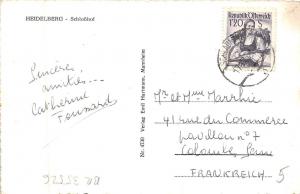 HEIDELBERG - Schloßhof
Republik Österreich
1'20 S
Sincères
amitiés...
Catherine
Verlag Emil Hartmann, Mannheim
Mr et Mme
41 rue du Commerce
pavillon n°7
Colombes Seine
FRANKREICH 5